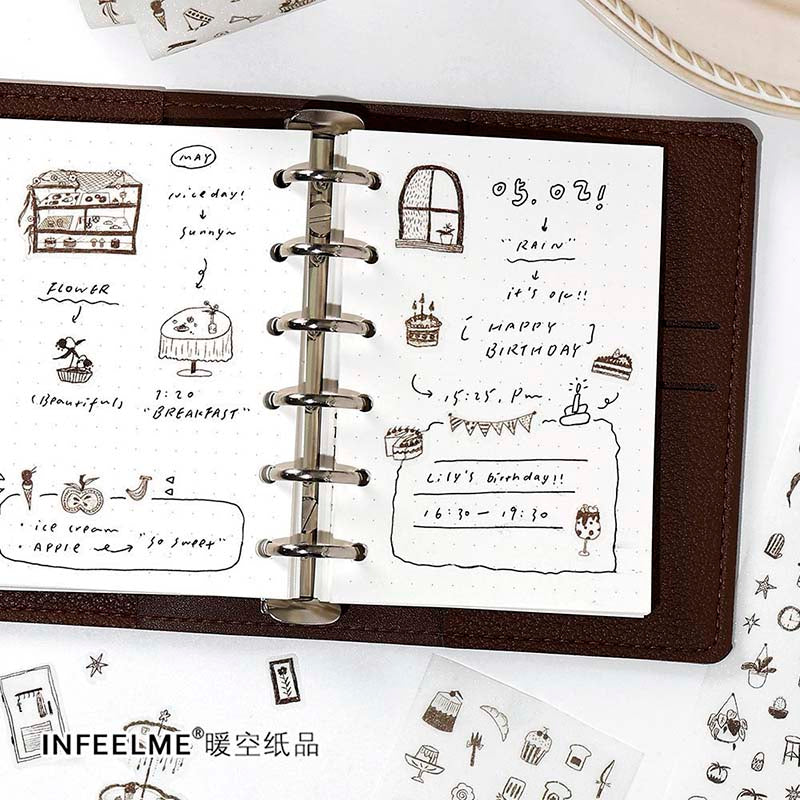 MAY
nice day!
sunny~
FLOWER
(Beautiful)
7:20
"BREAKFAST"
• ice cream
• APPLE
"so sweet"
05.02!
"RAIN"
it's ok!!
[ HAPPY
BIRTHDAY ]
15:25. pm.
Lily's birthday!!
16:30 — 19:30
INFEELME®暖空纸品